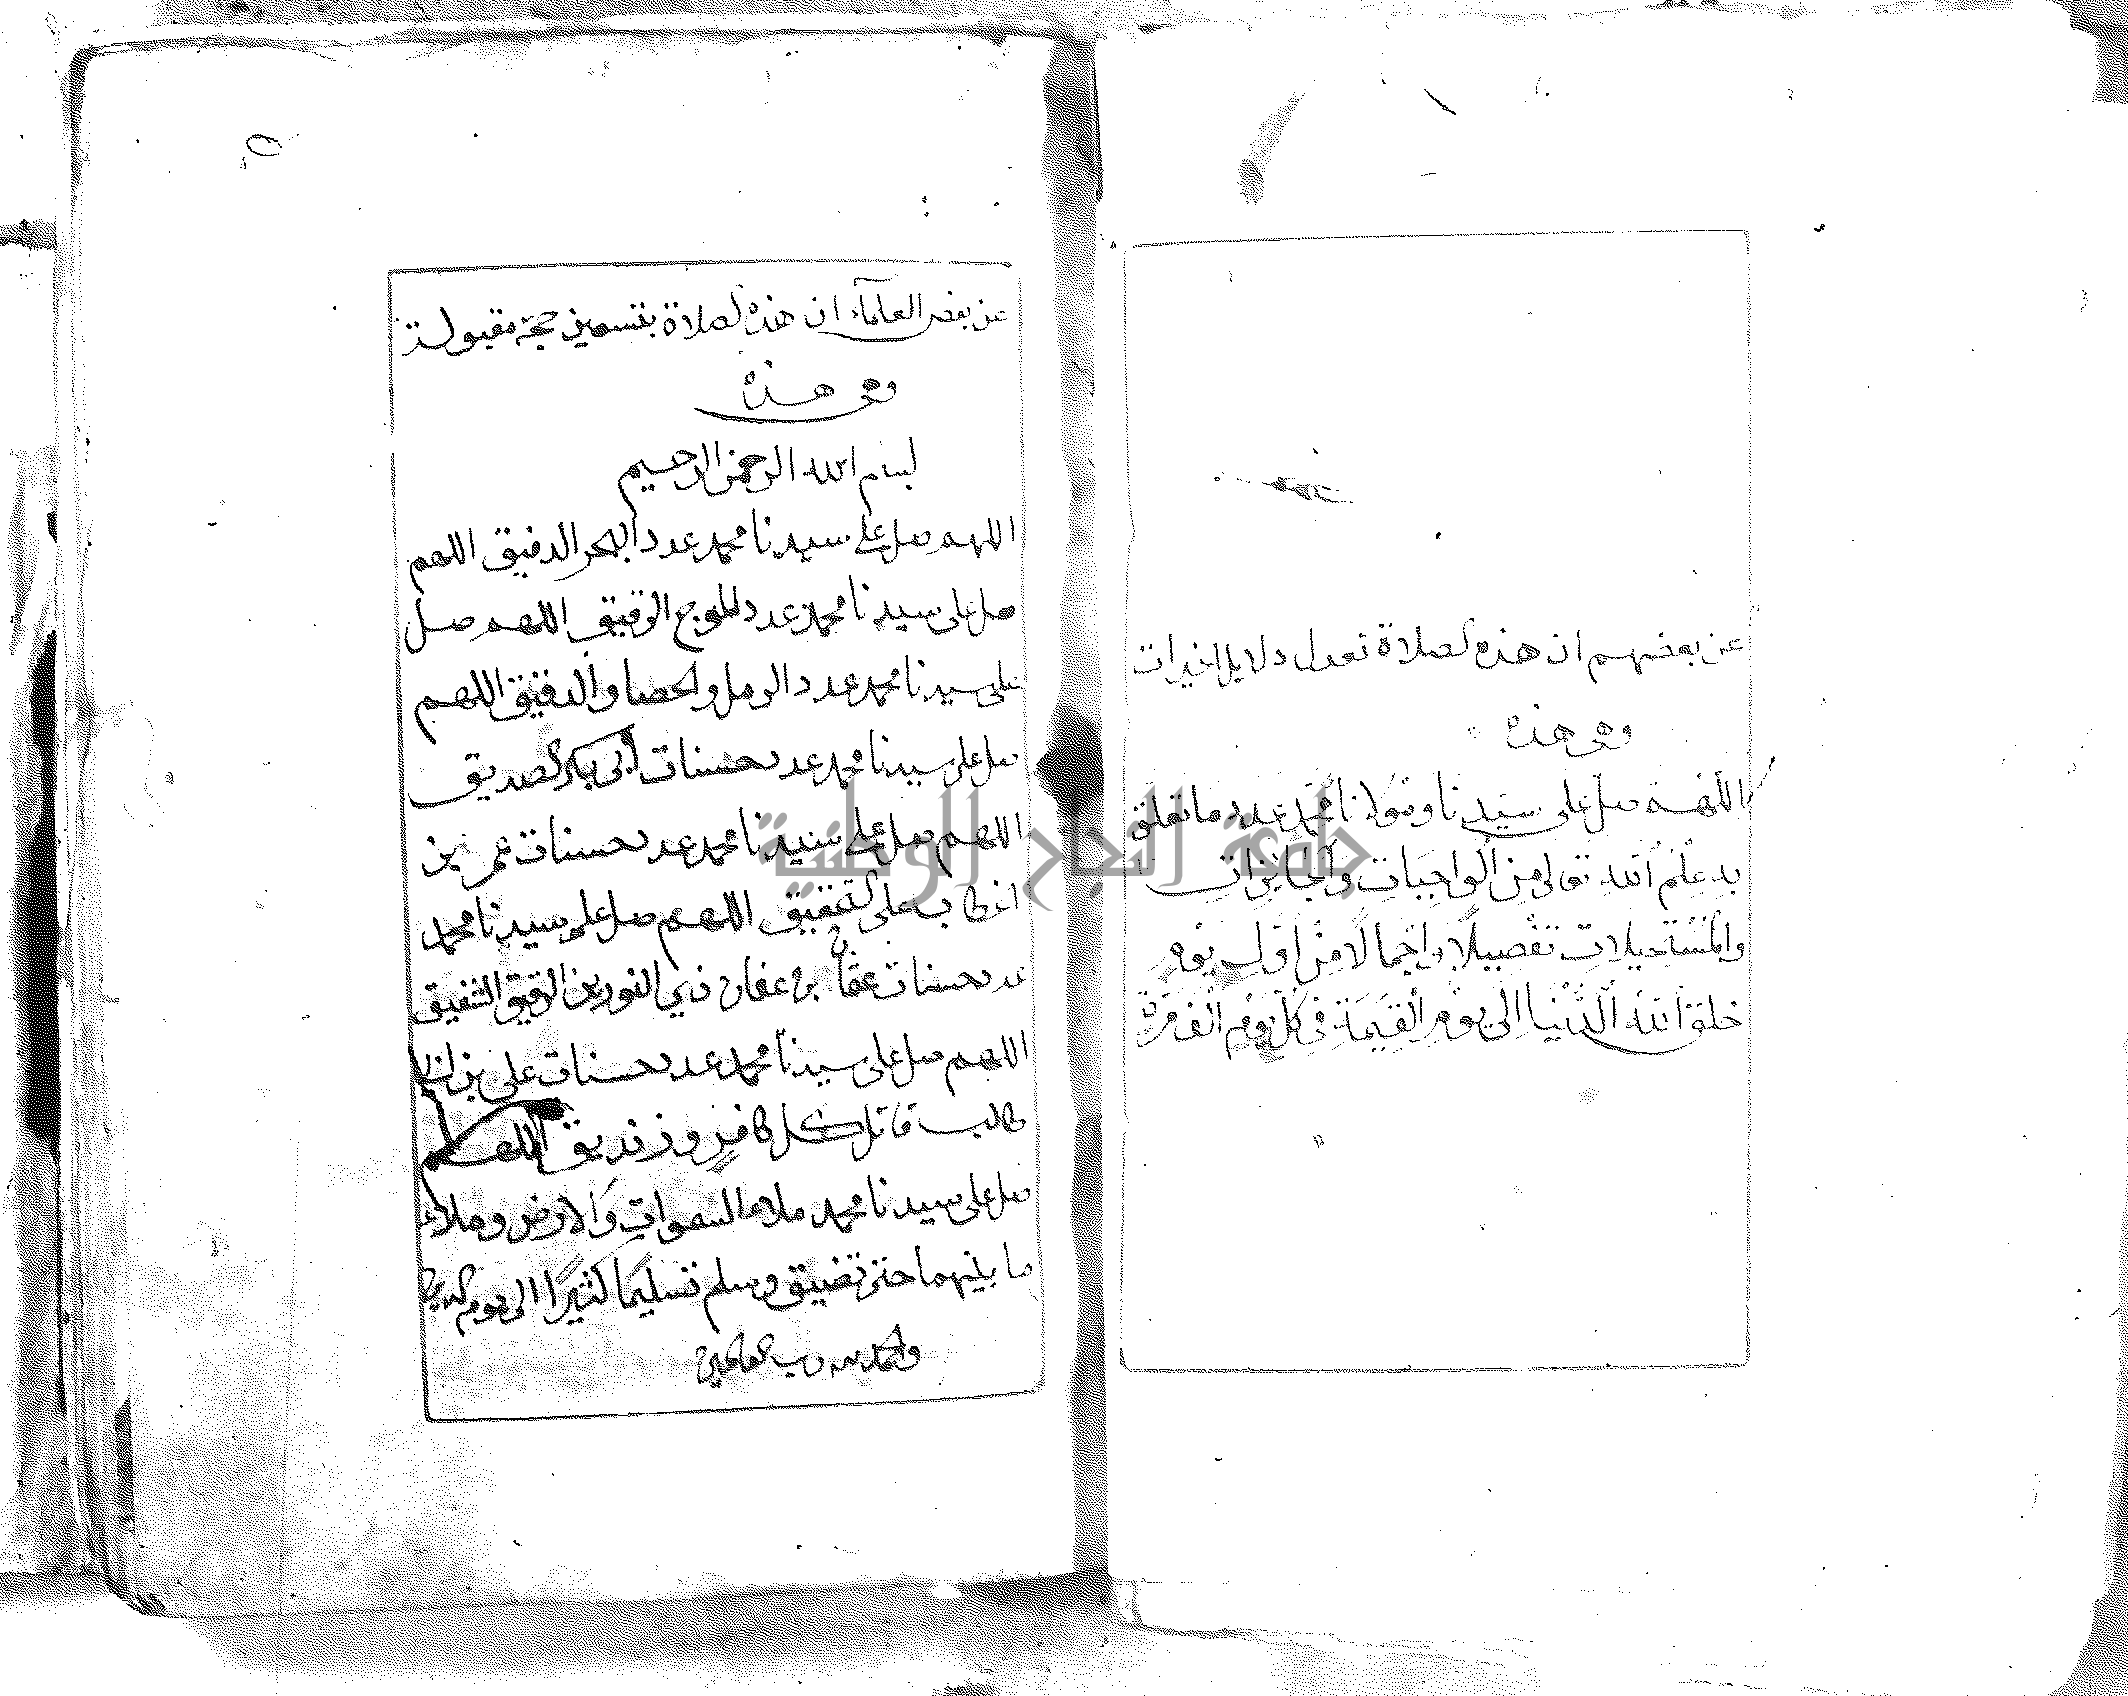 عن بعضهم ان هذه الصلاة تعدل دلايل الخيرات
وهي هذه
اللهم صل على سيدنا ومولانا محمد عدد ما تعلق
به علم الله تعالى من الواجبات والجايزات
والمستحيلات تفصيلا واجمالا من اول يوم
خلق الله الدنيا الى يوم القيمة في كل يوم الف مرة
عن بعض العلماء ان هذه الصلاة بتسعين حجة مقبولة
وهي هذه
بسم الله الرحمن الرحيم
اللهم صل على سيدنا محمد عدد البحر الدفيق اللهم
صل على سيدنا محمد عدد الموج الرقيق اللهم صل
على سيدنا محمد عدد الرمل والحصا والدقيق اللهم
صل على سيدنا محمد عدد حسنات ابي بكر الصديق
اللهم صل على سيدنا محمد عدد حسنات عمر بن
الخطاب على التحقيق اللهم صل على سيدنا محمد
عدد حسنات عثمان بن عفان ذي النورين الرقيق الشفيق
اللهم صل على سيدنا محمد عدد حسنات علي بن ابي
طالب قاتل كل كافر وزنديق اللهم
صل على سيدنا محمد ملاء السموات والارض وملاء
ما بينهما حتى تضيق وسلم تسليما كثيرا الى يوم الدين
والحمد لله رب العالمين
جامعة النجاح الوطنية